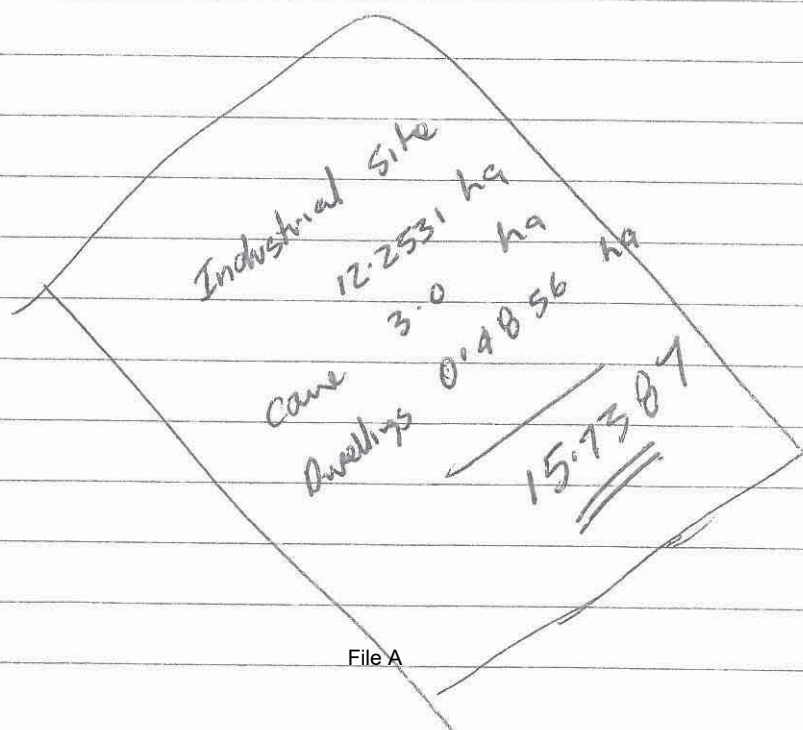 Industrial Site
12.2531 ha
Cane 3.0 ha
Dwellings 0.4856 ha
15.7387
File A